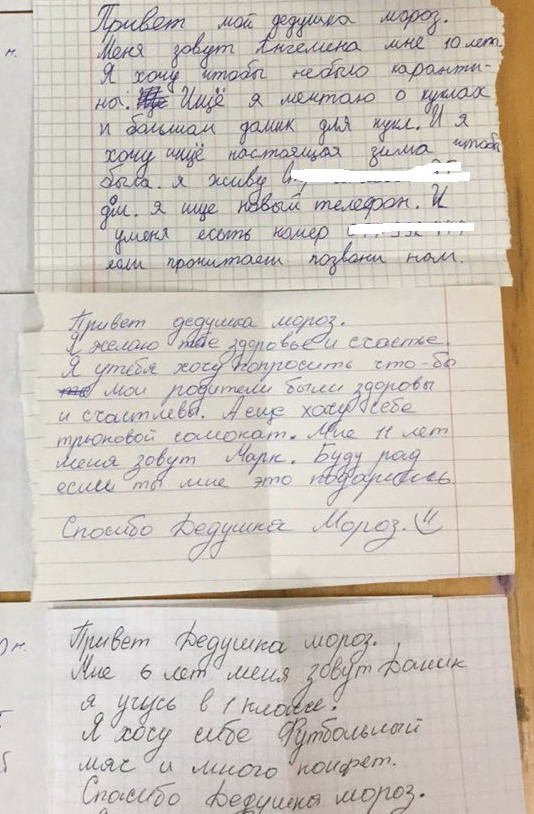 Привет мой дедушка мороз.
Меня зовут Ангелена мне 10 лет.
Я хочу чтобы небыло каранти-
на. Ищё я мечтаю о куклах
и большом дамик для кукл. И я
хочу ищё настоящая зима чтобы
была. я живу
дм. я ище новый телефон. И
уменя есоть номер
если прочитаеш позвони нам.
Привет дедушка мороз.
Я желаю тебе здоровье и счастье.
Я утебя хочу попросить что-бы
мои родители были здоровы
и счастлевы. А еще хочу себе
трюковой самокат. Мне 11 лет
меня зовут Марк. Буду рад
если ты мне это подаришь
Спосибо Дедушка Мороз.
Привет Дедушка мороз.
Мне 6 лет меня зовут Даник
я учусь в 1 классе.
Я хосу себе Футбольный
мяс и много конфет.
Спосибо Дедушка мороз.